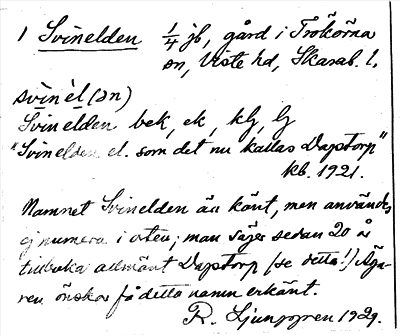 1 Svinelden 1/4 jb, gård i Trökörna
sn, Viste hd, Skarab. l.
svìnèl(ən)
Svinelden bek, ek, klj, lj
"Svinelden el. som det nu kallas Dapstorp"
kb. 1921.
Namnet Svinelden är känt, men användes
ej numera i orten; man säger sedan 20 år
tillbaka allmänt Dapstorp (se detta!) Äga-
ren önskar få detta namn erkänt.
R. Ljunggren 1929.